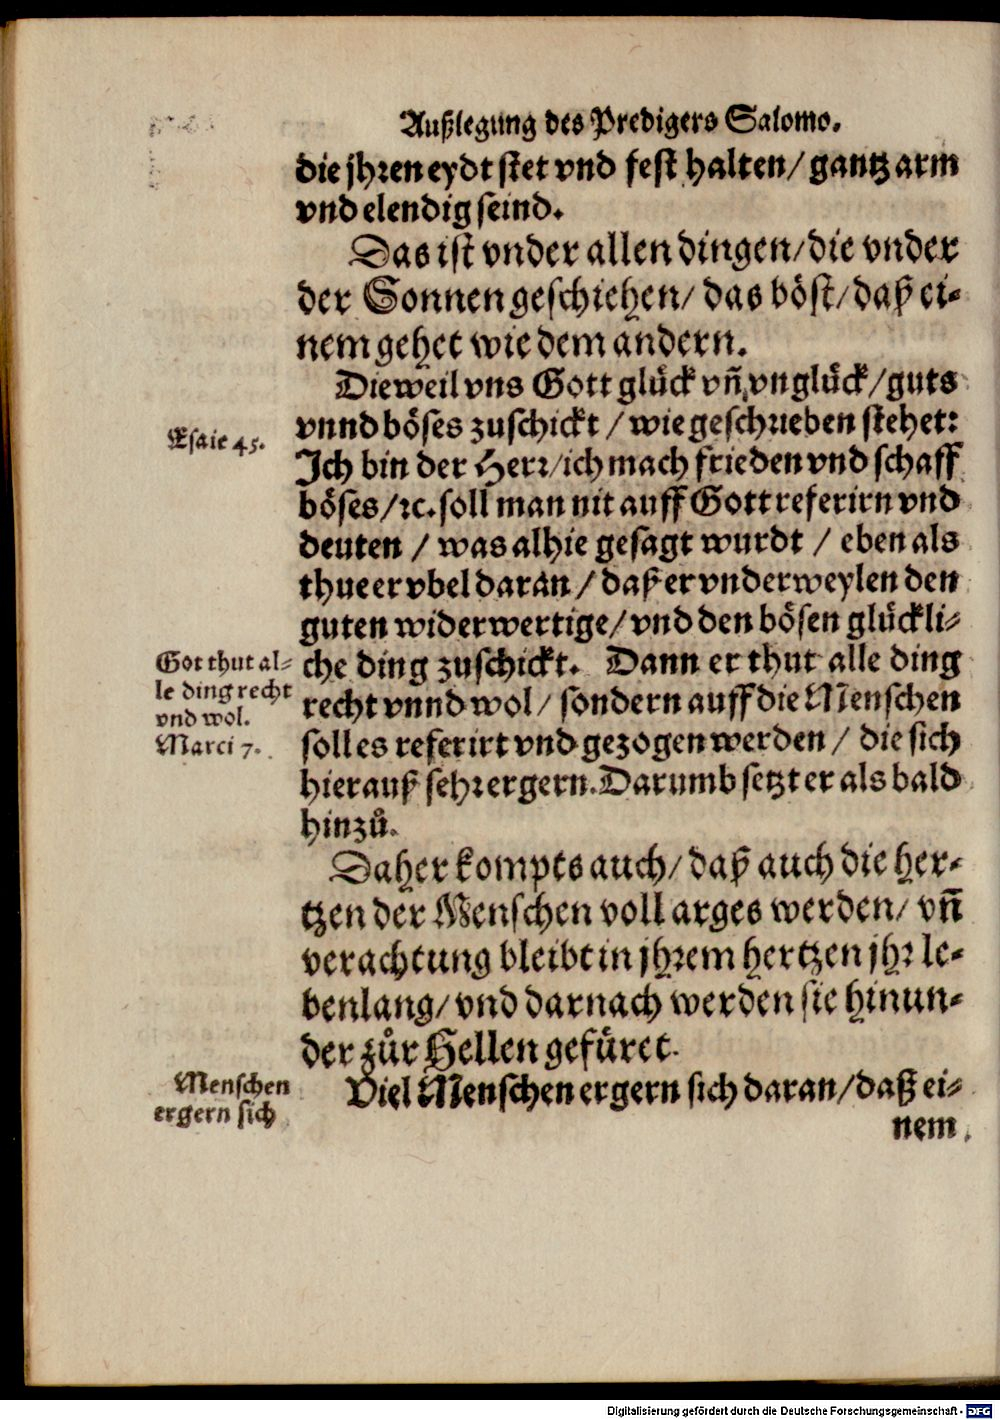 Außlegung des Predigers Salomo.
die jhren eydt stet vnd fest halten/ gantz arm
vnd elendig seind.
Das ist vnder allen dingen/die vnder
der Sonnen geschiehen/ das böst/daß ei-
nem gehet wie dem andern.
Dieweil vns Gott glück vñ vnglück/guts
vnnd böses zuschickt/ wie geschrieben stehet:
Esaie 45.
Ich bin der Herr/ich mach frieden vnd schaff
böses/ꝛc. soll man nit auff Gott referirn vnd
deuten/ was alhie gesagt wurdt/ eben als
thue er vbel daran/ daß er vnderweylen den
guten widerwertige/vnd den bösen glückli-
che ding zuschickt. Dann er thut alle ding
Got thut al-
le ding recht
vnd wol.
Marci 7.
recht vnnd wol/ sondern auff die Menschen
soll es referirt vnd gezogen werden/ die sich
hierauß sehr ergern. Darumb setzt er als bald
hinzů.
Daher kompts auch/ daß auch die her-
tzen der Menschen voll arges werden/ vñ
verachtung bleibt in jhrem hertzen jhr le-
benlang/ vnd darnach werden sie hinun-
der zůr Hellen gefüret.
Menschen
ergern sich
Viel Menschen ergern sich daran/daß ei-
nem
Digitalisierung gefördert durch die Deutsche Forschungsgemeinschaft - DFG